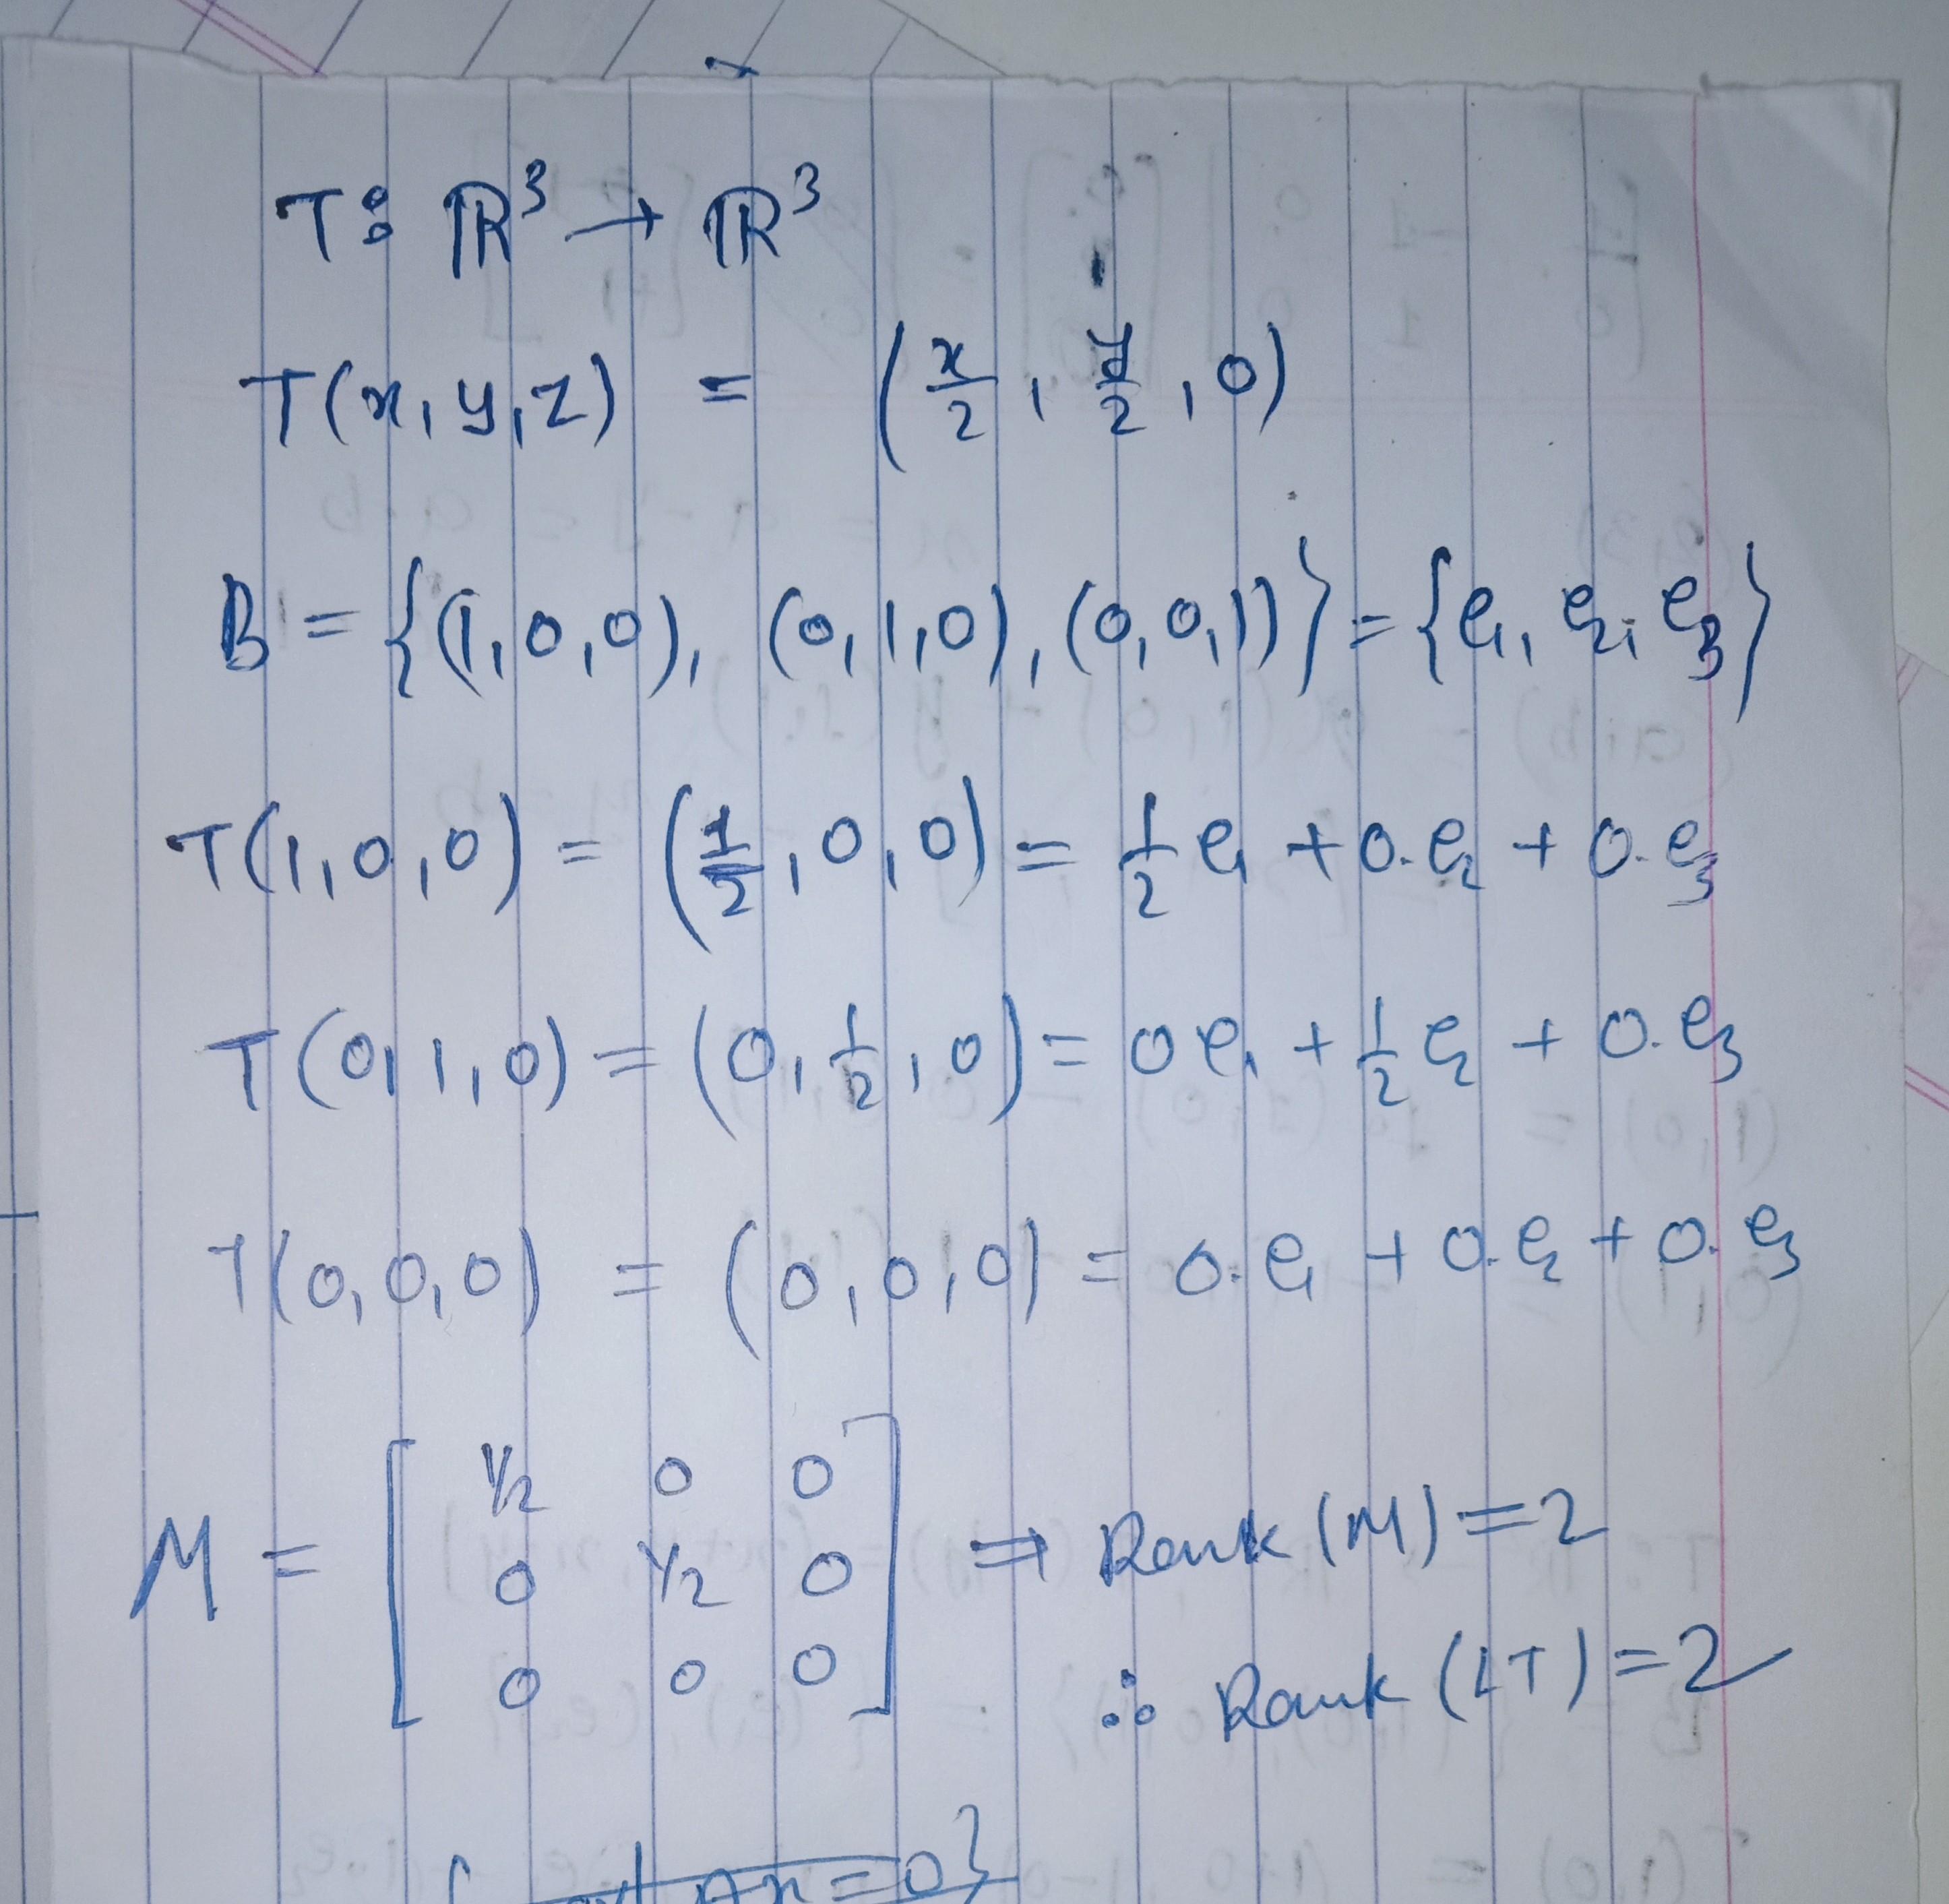 T: ℝ³ → ℝ³
T(x, y, z) = (x/2, y/2, 0)
B = {(1, 0, 0), (0, 1, 0), (0, 0, 1)} = {e₁, e₂, e₃}
T(1, 0, 0) = (1/2, 0, 0) = 1/2 e₁ + 0. e₂ + 0. e₃
T(0, 1, 0) = (0, 1/2, 0) = 0 e₁ + 1/2 e₂ + 0. e₃
T(0, 0, 0) = (0, 0, 0) = 0. e₁ + 0. e₂ + 0. e₃
M = [1/2 0 0
0 1/2 0
0 0 0] ⇒ Rank (M) = 2
∴ Rank (LT) = 2
An = 0}